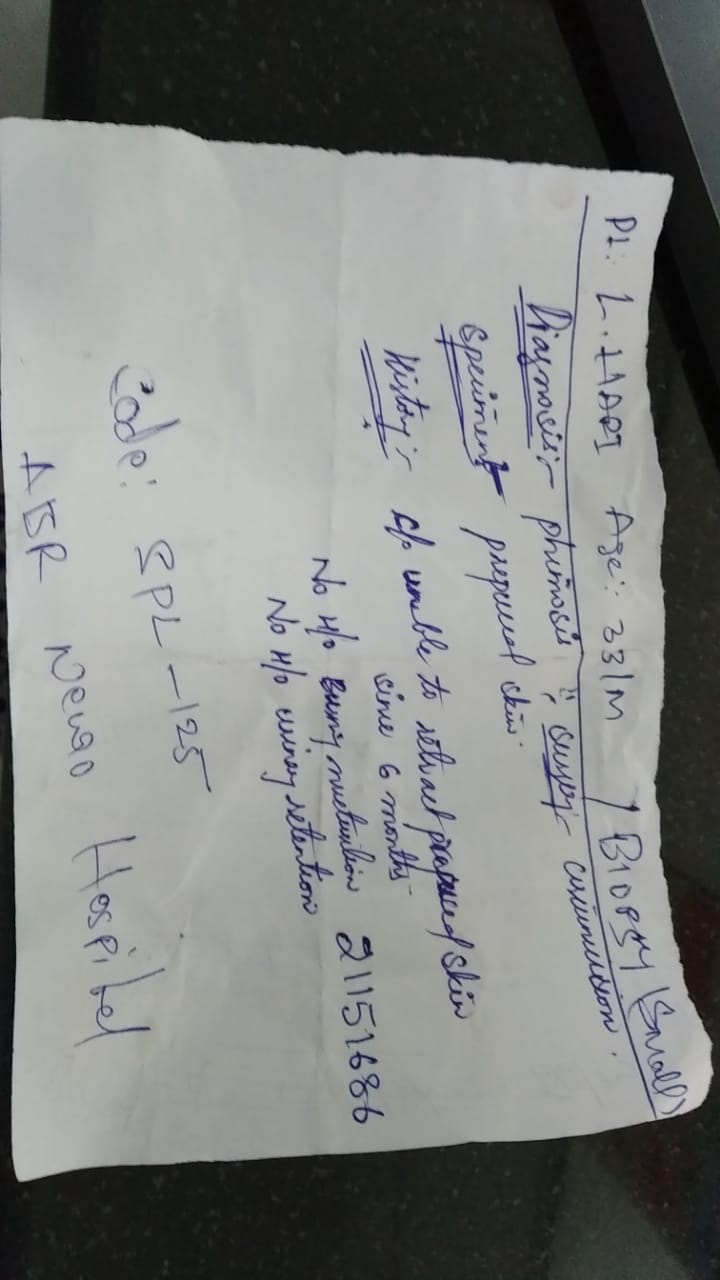 Pt: L. HARI Age: 33/M / BIOPSY (Small)
Diagnosis:- phimosis ; Surgery:- circumcision.
Specimen preputial skin.
History:- c/o unable to retract preputial skin
since 6 months.
No H/o burning micturition
No H/o urinary retention
21151686
Code: SPL-125
Hospital